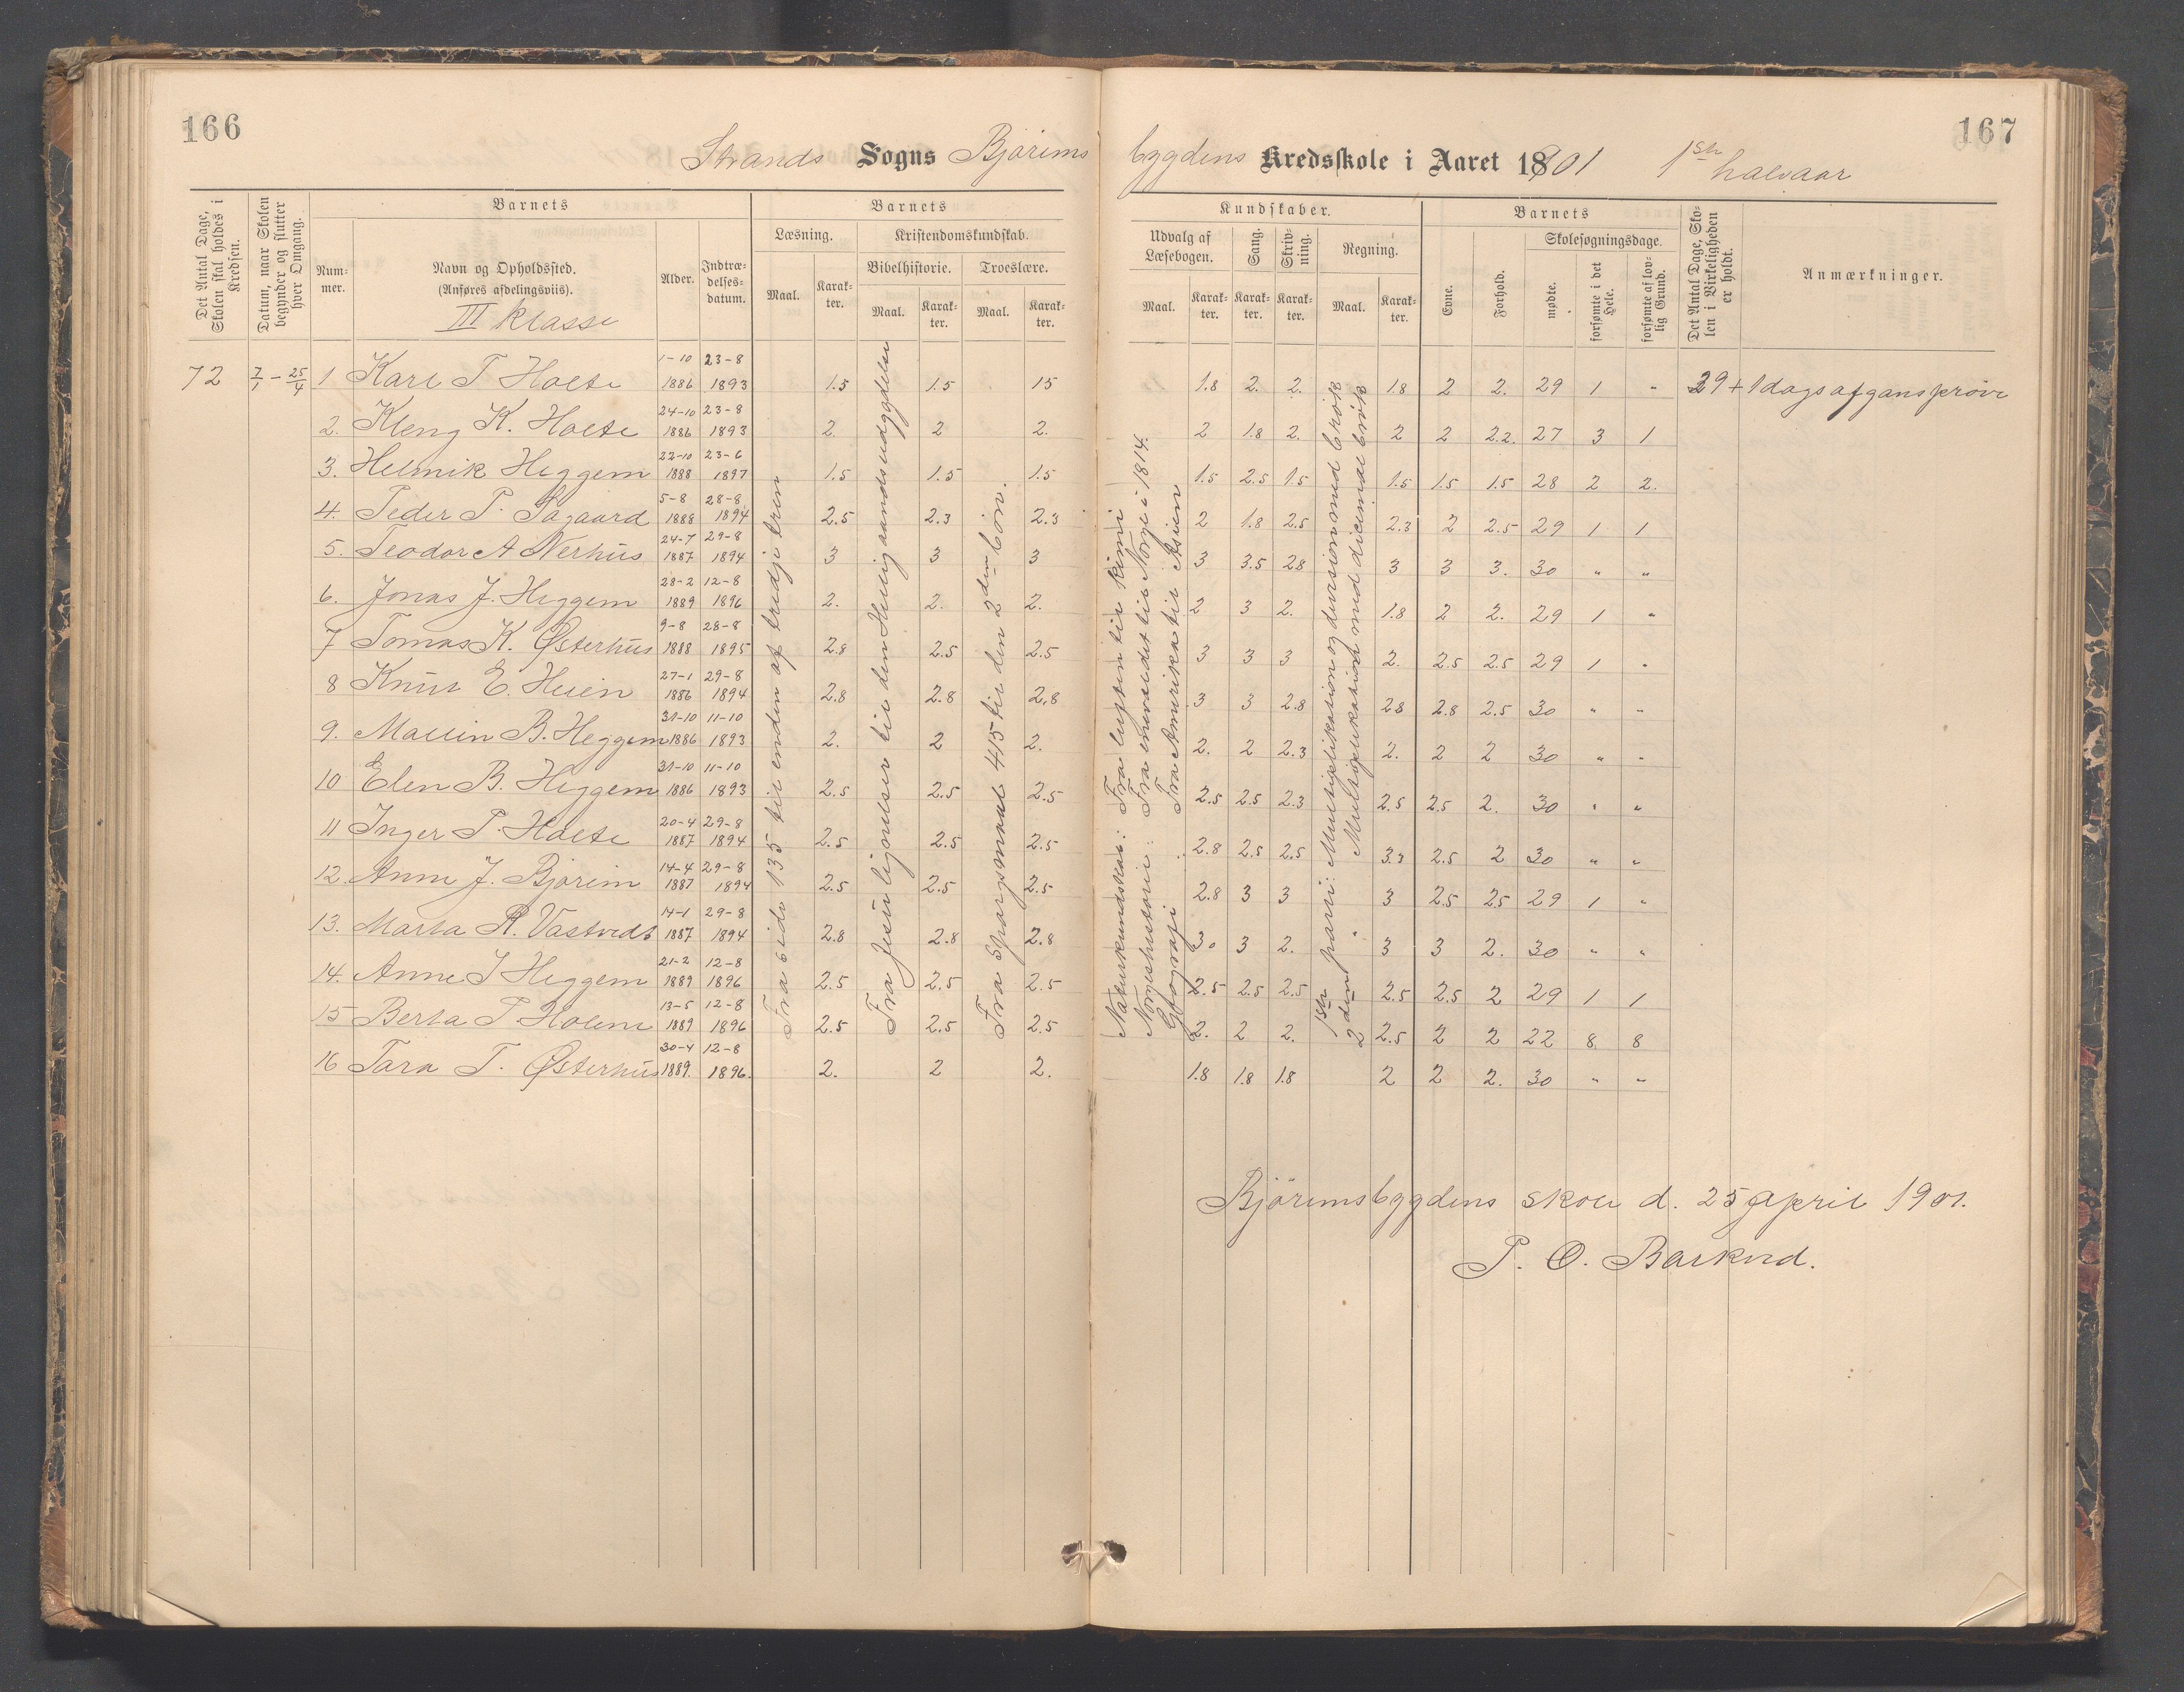 166
Strands Sogns Bjørims
Det Antal Dage, Skolen skal holdes i Kredsen.
Datum, naar Skolen begynder og slutter hver Omgang.
Barnets
Nummer.
Navn og Opholdssted.
(Anføres afdelingsviis).
III klasse
Alder.
Indtrædelsesdatum.
Barnets
Læsning.
Maal.
Karakter.
Kristendomskundskab.
Bibelhistorie.
Maal.
Karakter.
Troeslære.
Maal.
Karakter.
72 7/1 - 25/4 1 Karl T Holte 1-10 1886 23-8 1893 1.5 1.5 15
2. Kleng K. Holte 24-10 1886 23-8 1893 2. 2 2.
3. Helmik Heggem 22-10 1888 23-6 1897 1.5 1.5 1.5
4. Peder P. Tagaard 5-8 1888 28-8 1894 2.5 2.3 2.3
5. Teodor A Nerhus 24-7 1887 29-8 1894 3 3 3
6. Jonas J. Heggem 28-2 1889 12-8 1896 2. 2. 2.
7 Tomas K. Østerhus 9-8 1888 28-8 1895 2.8 2.5 2.5
8 Knut E. Hein 27-1 1886 29-8 1894 2.8 2.8 2.8
9. Mallin B. Heggem 31-10 1886 11-10 1893 2. 2 2.
10 Elen B. Heggem 31-10 1886 11-10 1893 2.5 2.5 2.5
11 Inger P. Holte 20-4 1887 29-8 1894 2.5 2.5 2.5
12. Anne J. Bjørim 14-4 1887 29-8 1894 2.5 2.5 2.5
13. Marta R. Vastvedt 14-1 1887 29-8 1894 2.8 2.8 2.8
14. Anne I Heggem 21-2 1889 12-8 1896 2.5 2.5 2.5
15 Berta T Holem 13-5 1889 12-8 1896 2.5 2.5 2.5
16 Tara T. Østerhus 30-4 1889. 12-8 1896. 2. 2 2.
Fra side 135 til enden af tredje trin
Fra Jesu lignelser til den Hellig aands udgydelse
Fra Spørgsmaal 415 til den 2den bøn.
167
bygdens Kredsskole i Aaret 18901 1ste halvaar
Kundskaber.
Udvalg af Læsebogen.
Maal.
Karakter.
Sang.
Karakter.
Skrivning.
Karakter.
Regning.
Maal.
Karakter.
Barnets
Evne.
Forhold.
Skolesøgningsdage.
mødte.
forsømte i det Hele.
forsømte af lovlig Grund.
Det Antal Dage, Skolen i Virkeligheden er holdt.
Anmærkninger.
1.8 2. 2. 1.8 2 2. 29 1 " 29 + 1 dags afgansprøve
2 1.8 2. 2 2 2.2. 27 3 1
1.5 2.5 1.5 1.5 1.5 1.5 28 2 2.
2 1.8 2.5 2.3 2 2.5 29 1 1
3 3.5 28 3 3 3. 30 " "
2 3 2. 1.8 2 2. 29 1 "
3 3 3 2. 2.5 2.5 29 1 "
3 3 2.8 28 2.8 2.5 30 " "
2. 2 2.3 2. 2 2 30 " "
2.5 2.5 2.3 2.5 2.5 2. 30 " "
2.8 2.5 2.5 3.3 2.5 2 30 " "
2.8 3 3 3 2.5 25 29 1 "
30 3 2. 3 3 2. 30 " "
2.5 2.5 2.5 2.5 2.5 2 29 1 1
2. 2 2. 2.5 2 2 22 8 8
1.8 1.8 1.8 2 2 2. 30 " "
Naturkundskab: Fra lygten til kimi
Norgeshistorie: Fra enevoldet til Norge i 1814.
Geografi Fra Amerika til Asien
1ste parti: Multiplikation og division med brøk
2den " Multiplikation med decimal brøk
Bjørimsbygdens skole d. 25 april 1901.
P. O. Barkved.